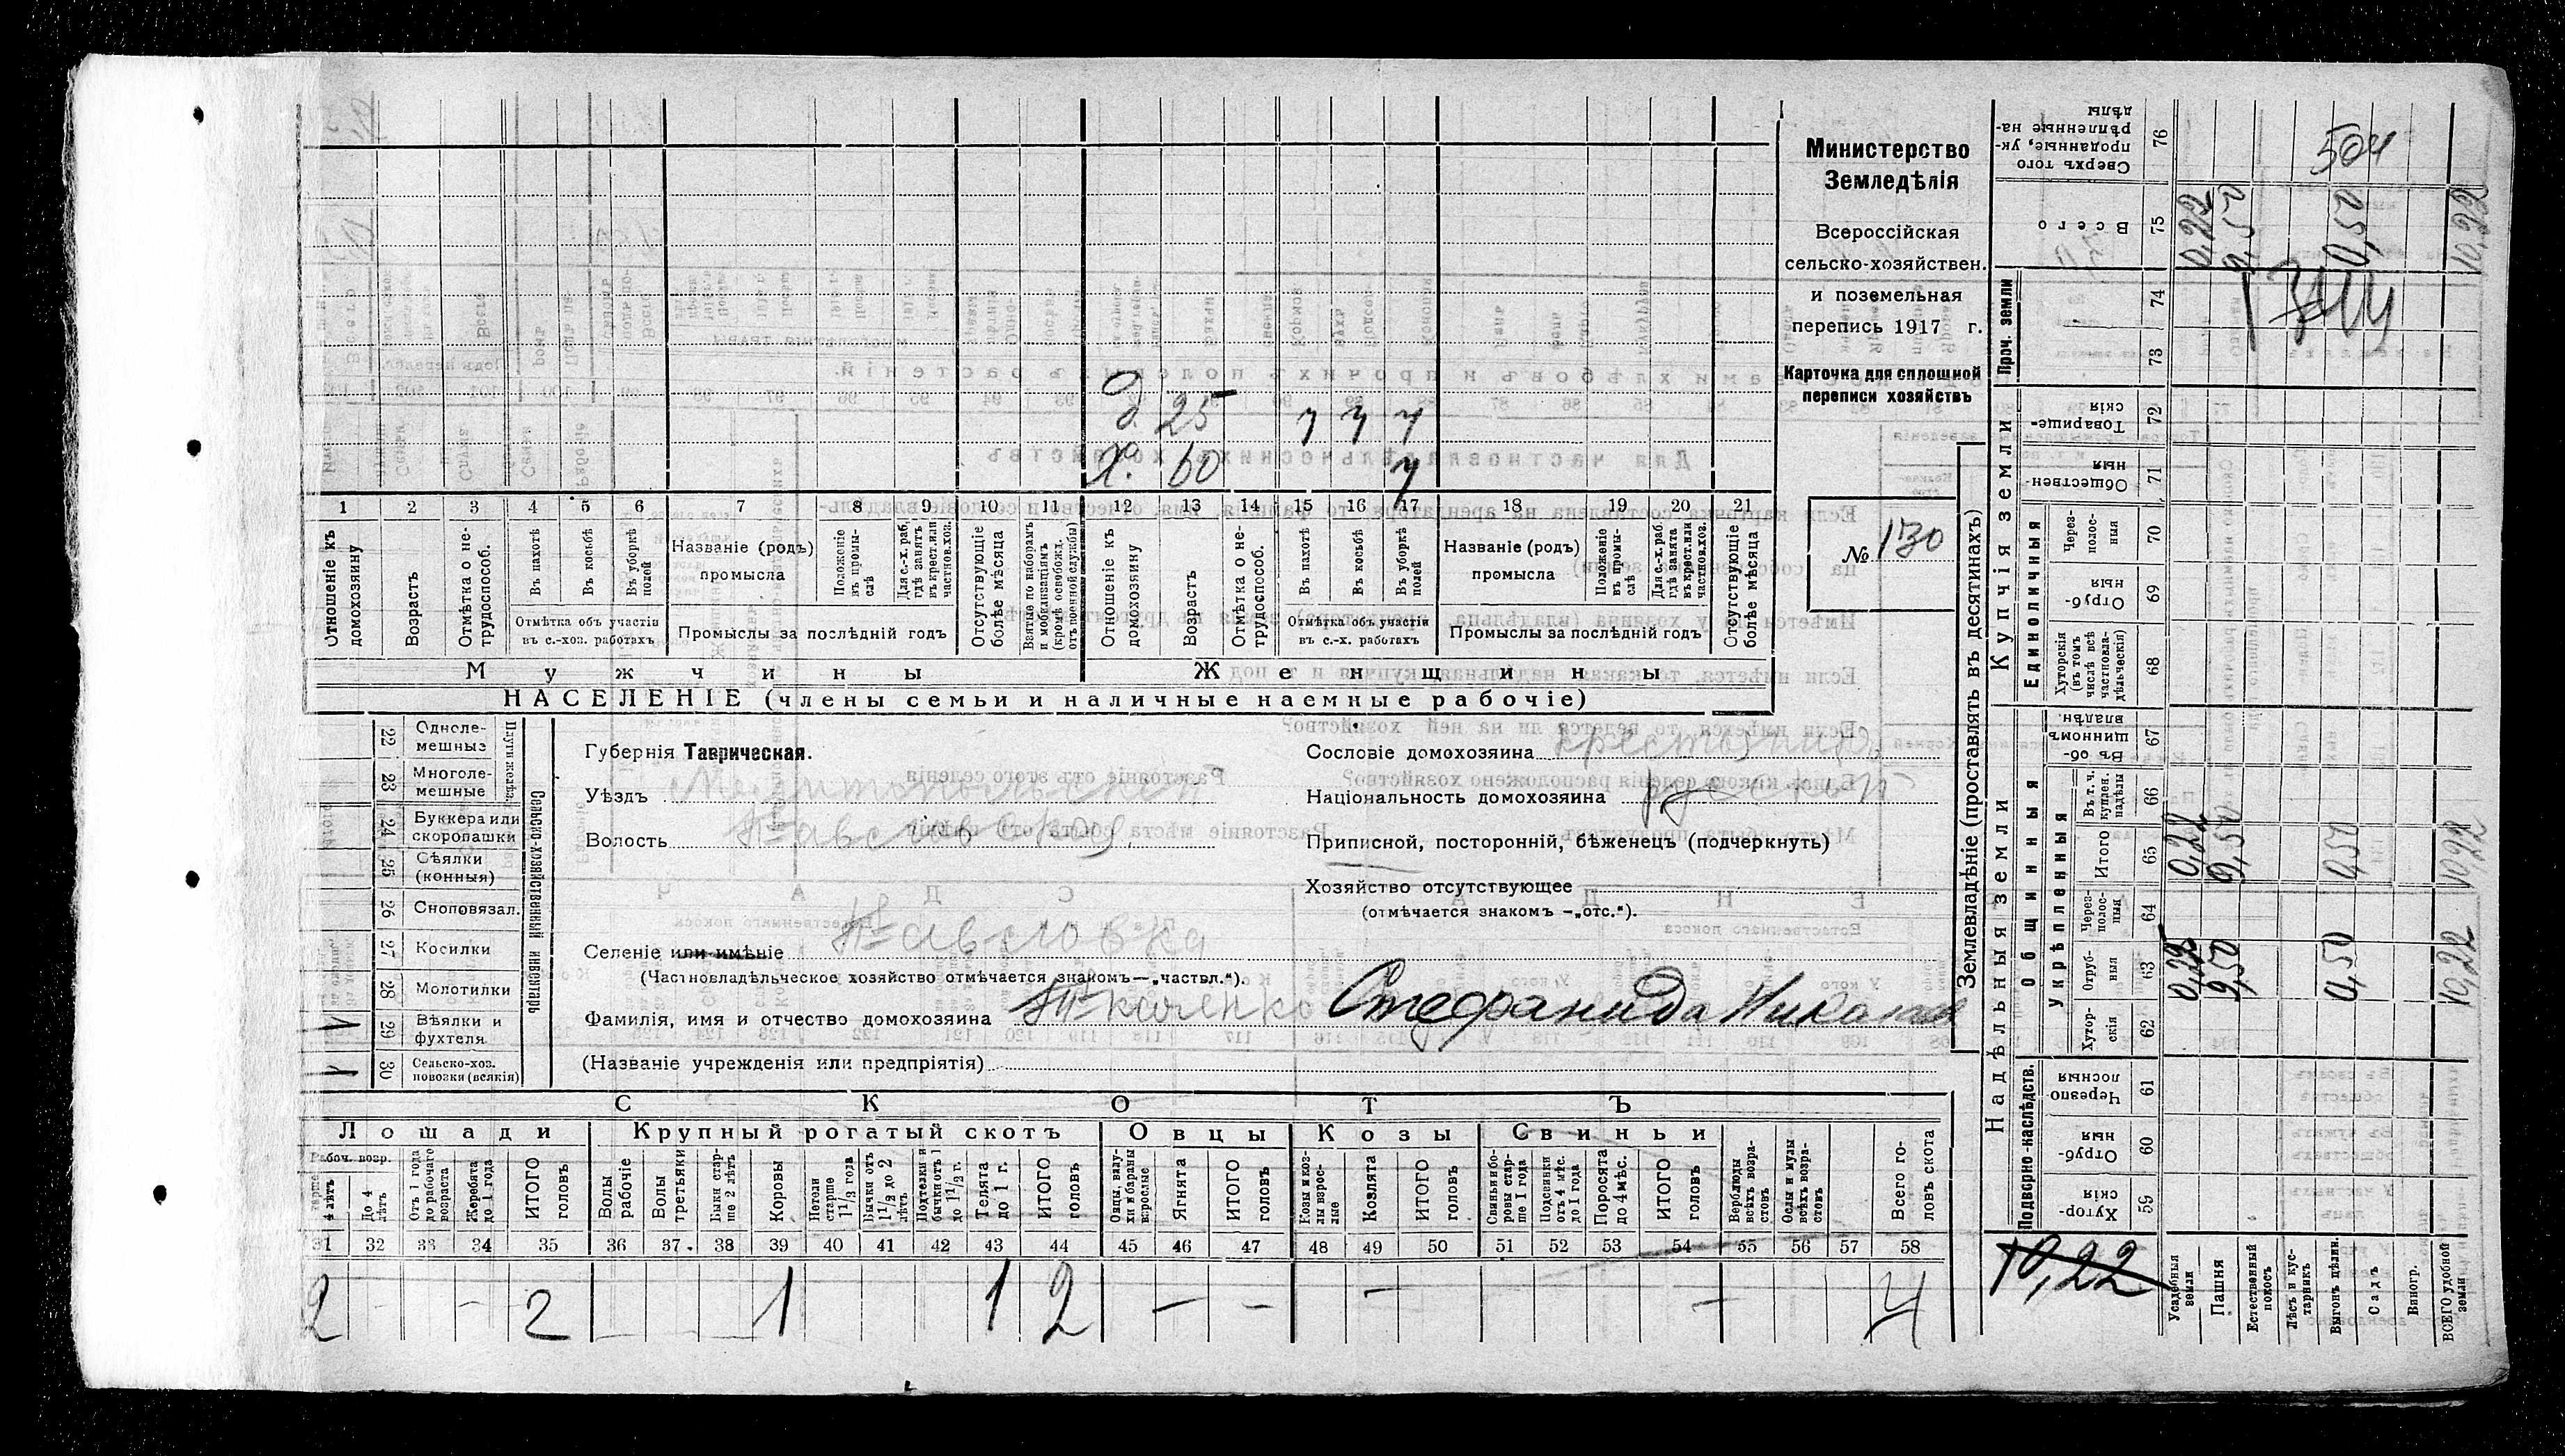 Министерство
Земледѣлія
Всероссійская
сельско-хозяйствен.
и поземельная
перепись 1917 г.
Карточка для сплошной
переписи хозяйствъ
№ 130
д. 25 у у у
Х. 60 у
1 2 3 4 5 6 7 8 9 10 11 12 13 14 15 16 17 18 19 20 21
Отношеніе къ домохозяину
Возрастъ
Отмѣтка о не-трудоспособ.
Въ пахотѣ
Въ косьбѣ
Въ уборкѣ полей
Отмѣтка объ участіи
въ с.-хоз. работахъ
Названіе (родъ)
промысла
Положеніе въ промы-слѣ
Для с.-х. раб. гдѣ занятъ въ крест. или частнов. хоз.
Промыслы за послѣдній годъ
Отсутствующіе болѣе мѣсяца
Взятые по наборамъ и мобилизаціямъ (кромѣ освобожд. отъ военной службы)
Отношеніе къ домохозяину
Возрастъ
Отмѣтка о не-трудоспособ.
Въ пахотѣ
Въ косьбѣ
Въ уборкѣ полей
Отмѣтка объ участіи
въ с.-х. работахъ
Названіе (родъ)
промысла
Положеніе въ промы-слѣ
Для с.-х. раб. гдѣ занята въ крест. или частнов. хоз.
Промыслы за послѣдній годъ
Отсутствующіе болѣе мѣсяца
Мужчины
Женщины
НАСЕЛЕНІЕ (члены семьи и наличные наемные рабочіе)
Сельско-хозяйственный инвентарь
22 Одноле-мешные
23 Многоле-мешные
24 Буккера или скоропашки
25 Сѣялки (конныя)
26 Сноповязал.
27 Косилки
28 Молотилки
29 Вѣялки и фухтеля 1
30 Сельско-хоз. повозки (всякія) 1
Губернія Таврическая.
Уѣздъ Мелитопольскій
Волость Павловская
Селеніе или имѣніе Павловка
(Частновладѣльческое хозяйство отмѣчается знакомъ—„частвл.“).
Фамилія, имя и отчество домохозяина Ткаченко Стефанида
(Названіе учрежденія или предпріятія)
Сословіе домохозяина крестьянин
Національность домохозяина русскій
Приписной, посторонній, бѣженецъ (подчеркнуть)
Хозяйство отсутствующее
(отмѣчается знакомъ —„отс.“).
СКОТЪ
Лошади Крупный рогатый скотъ Овцы Козы Свиньи
Рабоч. возр.
старше 4 лѣтъ
До 4 лѣтъ
Отъ 1 года до рабочаго возраста
Жеребята до 1 года
ИТОГО головъ
Волы рабочіе
Волы третьяки
Быки стар-ше 2 лѣтъ
Коровы
Нетели старше 1 1/2 года
Бычки отъ 1 1/2 до 2 лѣтъ
Подтелки и быки отъ 1 до 1 1/2 г.
Телята до 1 г.
ИТОГО головъ
Овцы, валу-хи и бараны взрослые
Ягнята
ИТОГО головъ
Козы и коз-лы взрос-лые
Козлята
ИТОГО головъ
Свиньи и бо-ровы стар-ше 1 года
Подсвинки отъ 4 мѣс. до 1 года
Поросята до 4 мѣс.
ИТОГО головъ
Верблюды всѣхъ возра-стовъ
Ослы и мулы всѣхъ возра-стовъ
Всего го-ловъ скота
31 32 33 34 35 36 37 38 39 40 41 42 43 44 45 46 47 48 49 50 51 52 53 54 55 56 57 58
2 - - 2 1 1 2 — — — — 4
Землевладѣніе (проставлять въ десятинахъ)
Купчія земли
Надѣльныя земли
Проч. земли
Единоличныя
Общинныя
Укрѣпленныя
Подворно-наслѣдств.
76 Сверхъ того проданные, ук-рѣпленные на-дѣлы
75 Всего 0,22 9,50 0,50 10,22
74
73
72 Товарище-скія
71 Обществен-ныя
70 Через-полос-ныя
69 Отруб-ныя
68 Хуторскія (въ томъ числѣ всѣ частновла-дѣльческія)
67 Въ об-щинномъ владѣн.
66 Въ т. ч. куплен. надѣлы
65 Итого 0,22 9,50 0,50 10,22
64 Через-полос-ныя
63 Отруб-ныя 0,22 9,50 0,50 10,22
62 Хутор-скія
61 Черезпо лосныя
60 Отруб-ныя
59 Хутор-скія
504
10,22
Усадебныя земли
Пашня
Естественный покосъ
Лѣсъ и кус-тарникъ
Выгонъ цѣлин.
Садъ
Виногр.
ВСЕГО удобной земли